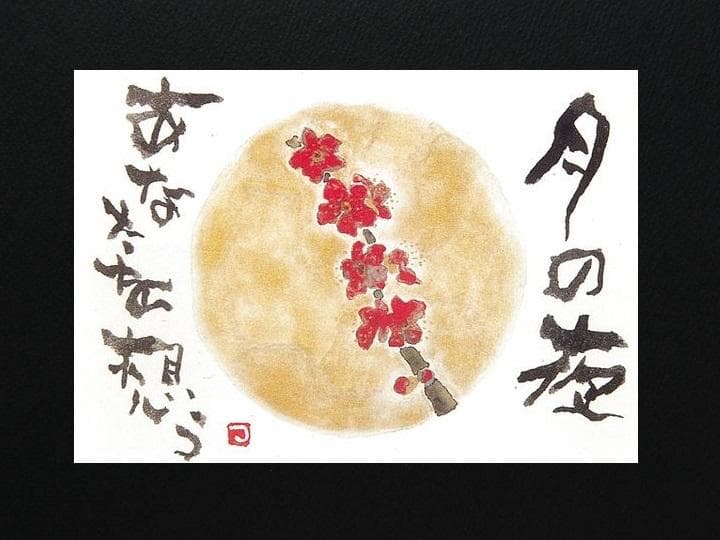 月の夜
あなたを想う